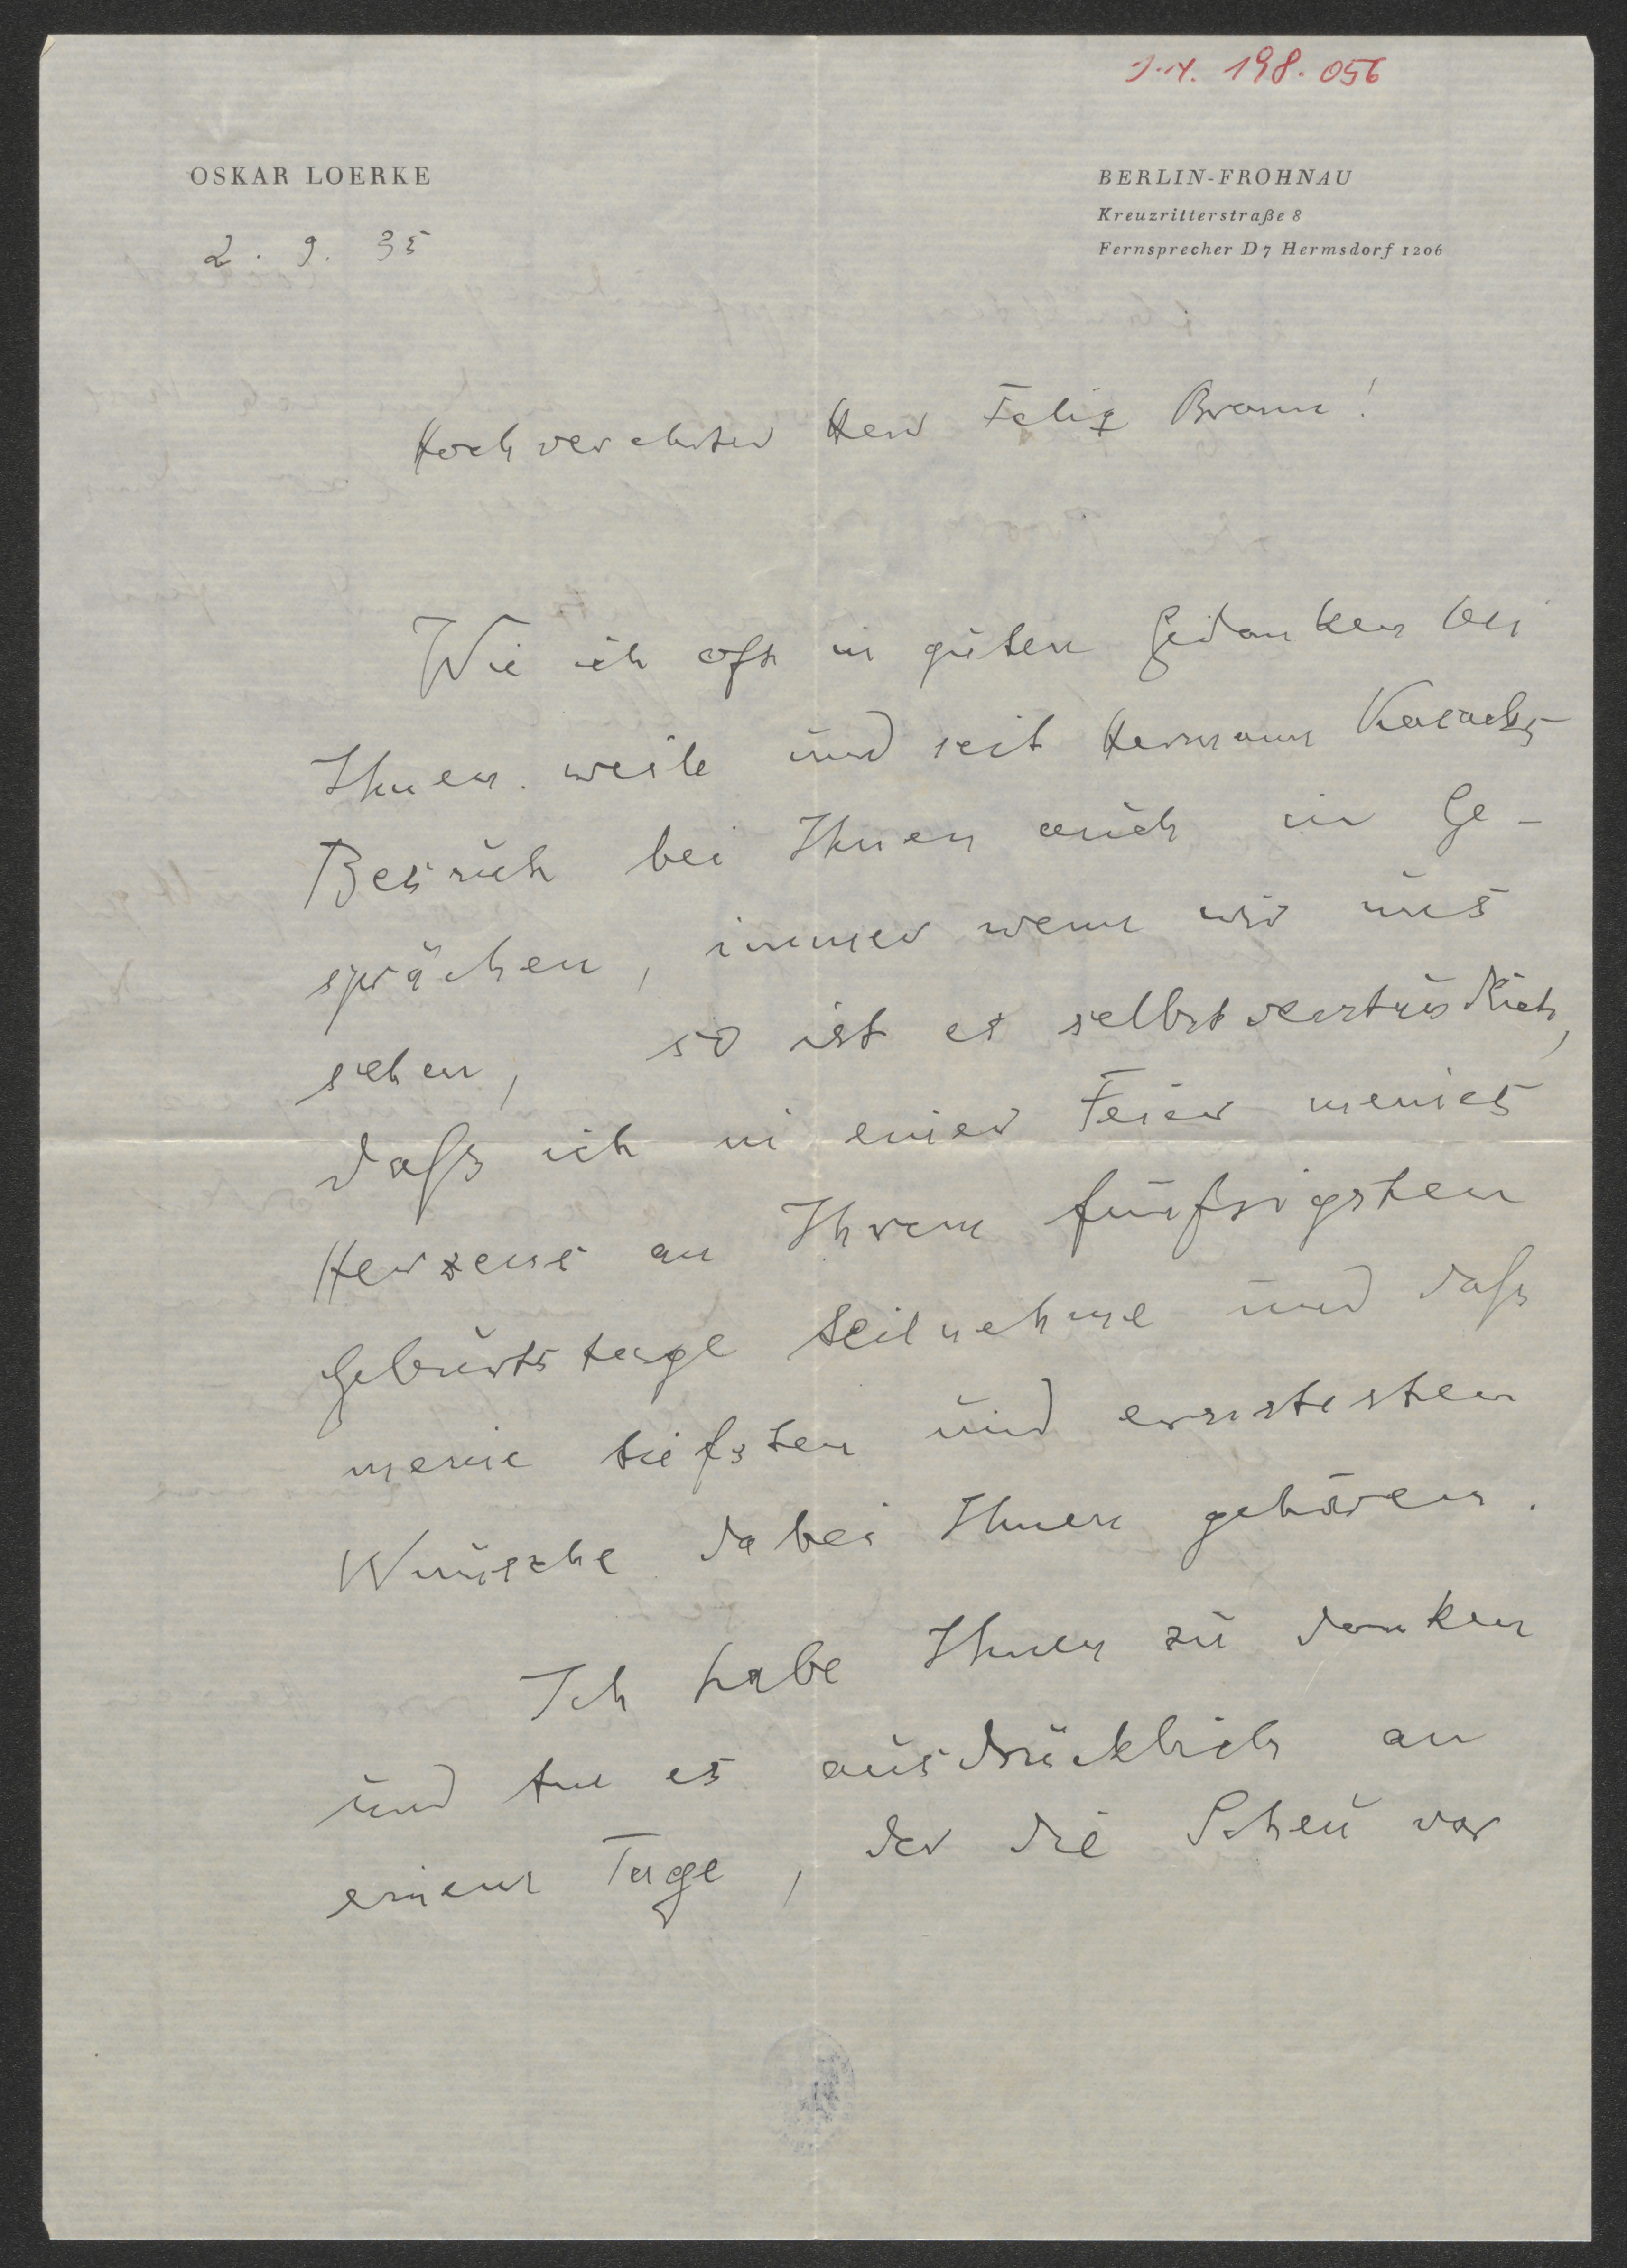 J.N. 198.056
OSKAR LOERKE
BERLIN-FROHNAU
Kreuzritterstraße 8
Fernsprecher D 7 Hermsdorf 1206
2. 9. 35
Hochverehrter Herr Felix Braun!
Wie ich oft in guten Gedanken bei
Ihnen weile und seit Hermann Kasacks
Besuch bei Ihnen auch in Ge-
sprächen, immer wenn wir uns
sehen, so ist es selbstverständlich,
daß ich in einer Feier meines
Herzens an Ihrem fünfzigsten
Geburtstage teilnehme und daß
meine tiefsten und ernstesten
Wünsche dabei Ihnen gehören.
Ich habe Ihnen zu danken
und tue es ausdrücklich an
einem Tage, der die Scheu vor